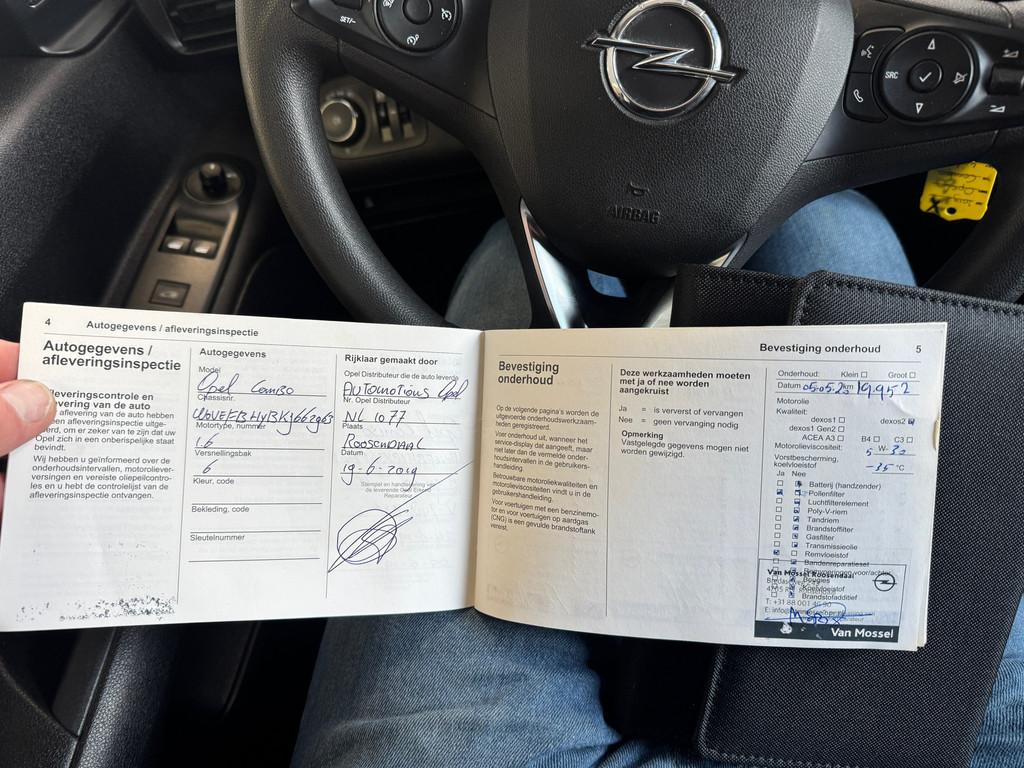 SET/-
SRC
AIRBAG
4
Autogegevens / afleveringsinspectie
Autogegevens /
afleveringsinspectie
everingscontrole en
vering van de auto
aflevering van de auto hebben
een afleveringsinspectie uitge-
erd, om er zeker van te zijn dat uw
Opel zich in een onberispelijke staat
bevindt.
Wij hebben u geïnformeerd over de
onderhoudsintervallen, motoroliever-
versingen en vereiste oliepeilcontro-
les en u hebt de controlelijst van de
afleveringsinspectie ontvangen.
Autogegevens
Model
Opel Combo
Chassisnr.
Motortype, nummer
1.6
Versnellingsbak
6
Kleur, code
Bekleding, code
Sleutelnummer
Rijklaar gemaakt door
Opel Distributeur die de auto levert
AUTOMOTIONS Opel
Nr. Opel Distributeur
NL 1077
Plaats
ROOSENDAAL
Datum
19-6-2019
Stempel en handtekening van
de leverende Opel Erkend
Reparateur
Bevestiging onderhoud
5
Bevestiging
onderhoud
Op de volgende pagina's worden de
uitgevoerde onderhoudswerkzaam-
heden geregistreerd.
Voer onderhoud uit, wanneer het
service-display dat aangeeft, maar
niet later dan de vermelde onder-
houdsintervallen in de gebruikers-
handleiding.
Betrouwbare motoroliekwaliteiten en
motorolieviscositeiten vindt u in de
gebruikershandleiding.
Voor voertuigen met een benzinemo-
tor en voor voertuigen op aardgas
(CNG) is een gevulde brandstoftank
vereist.
Deze werkzaamheden moeten
met ja of nee worden
aangekruist
Ja = is ververst of vervangen
Nee = geen vervanging nodig
Opmerking
Vastgelegde gegevens mogen niet
worden gewijzigd.
Onderhoud: Klein Groot
Datum 05-05-23 km 19.952
Motorolie
Kwaliteit:
dexos1 dexos2
dexos1 Gen2
ACEA A3 B4 C3
Motorolieviscositeit: 5 W- 30
Vorstbescherming,
koelvloeistof -35 °C
Ja Nee
Batterij (handzender)
Pollenfilter
Luchtfilterelement
Poly-V-riem
Tandriem
Brandstoffilter
Gasfilter
Transmissieolie
Remvloeistof
Bandenreparatieset
Bougies
Koelvloeistof
Brandstofadditief
Van Mossel Roosendaal
Van Mossel